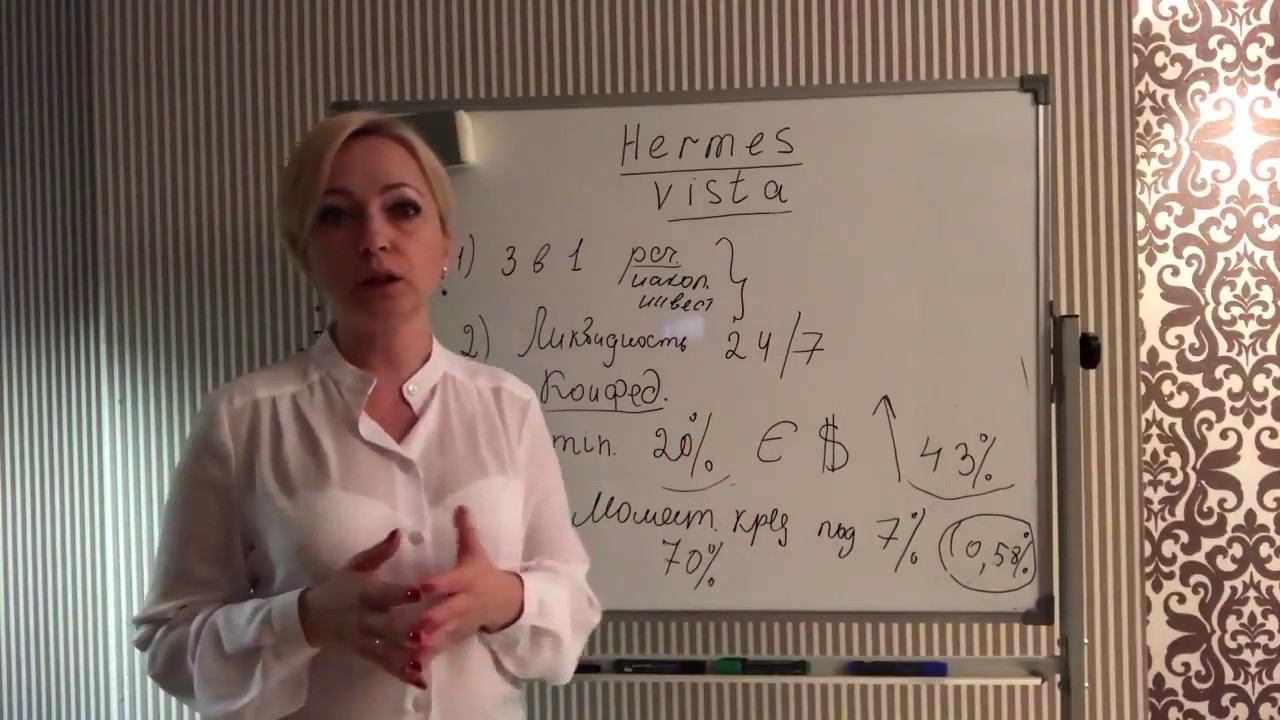 Hermes
vista
1) 3 в 1 рсч.
накоп.
инвест
2) Ликвидность 24/7
Конфед.
min. 20% € $ ↑ 43%
Момент. кред под 7% (0,58%)
70%